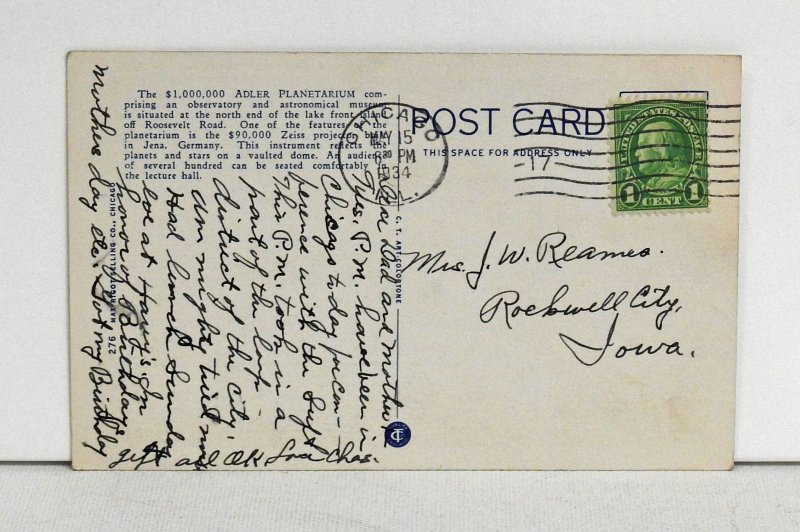 The $1,000,000 ADLER PLANETARIUM com-
prising an observatory and astronomical museum
is situated at the north end of the lake front island
off Roosevelt Road. One of the features of the
planetarium is the $90,000 Zeiss projector, built
in Jena, Germany. This instrument reflects the
planets and stars on a vaulted dome. An audience
of several hundred can be seated comfortably in
the lecture hall.
POST CARD
THIS SPACE FOR ADDRESS ONLY
CHICAGO
MAY 15
8 30 PM
1934
ILL.
17
UNITED STATES POSTAGE
1 CENT 1
Mrs. J. W. Reames.
Rockwell City,
Iowa.
Dear Dad and Mother,
Tues. P.M. have been in
Chicago today for con-
ference with the Supt
This P.M. took in a
part of the loop -
district of the city.
Am mighty tired now
Had lunch Sunday
eve at Harry's. In
honor of Birthdays
Mothers day etc. Got my Birthday
gift all OK Love Chas.
276 MAX RIGOT SELLING CO., CHICAGO
C. T. ART-COLORTONE